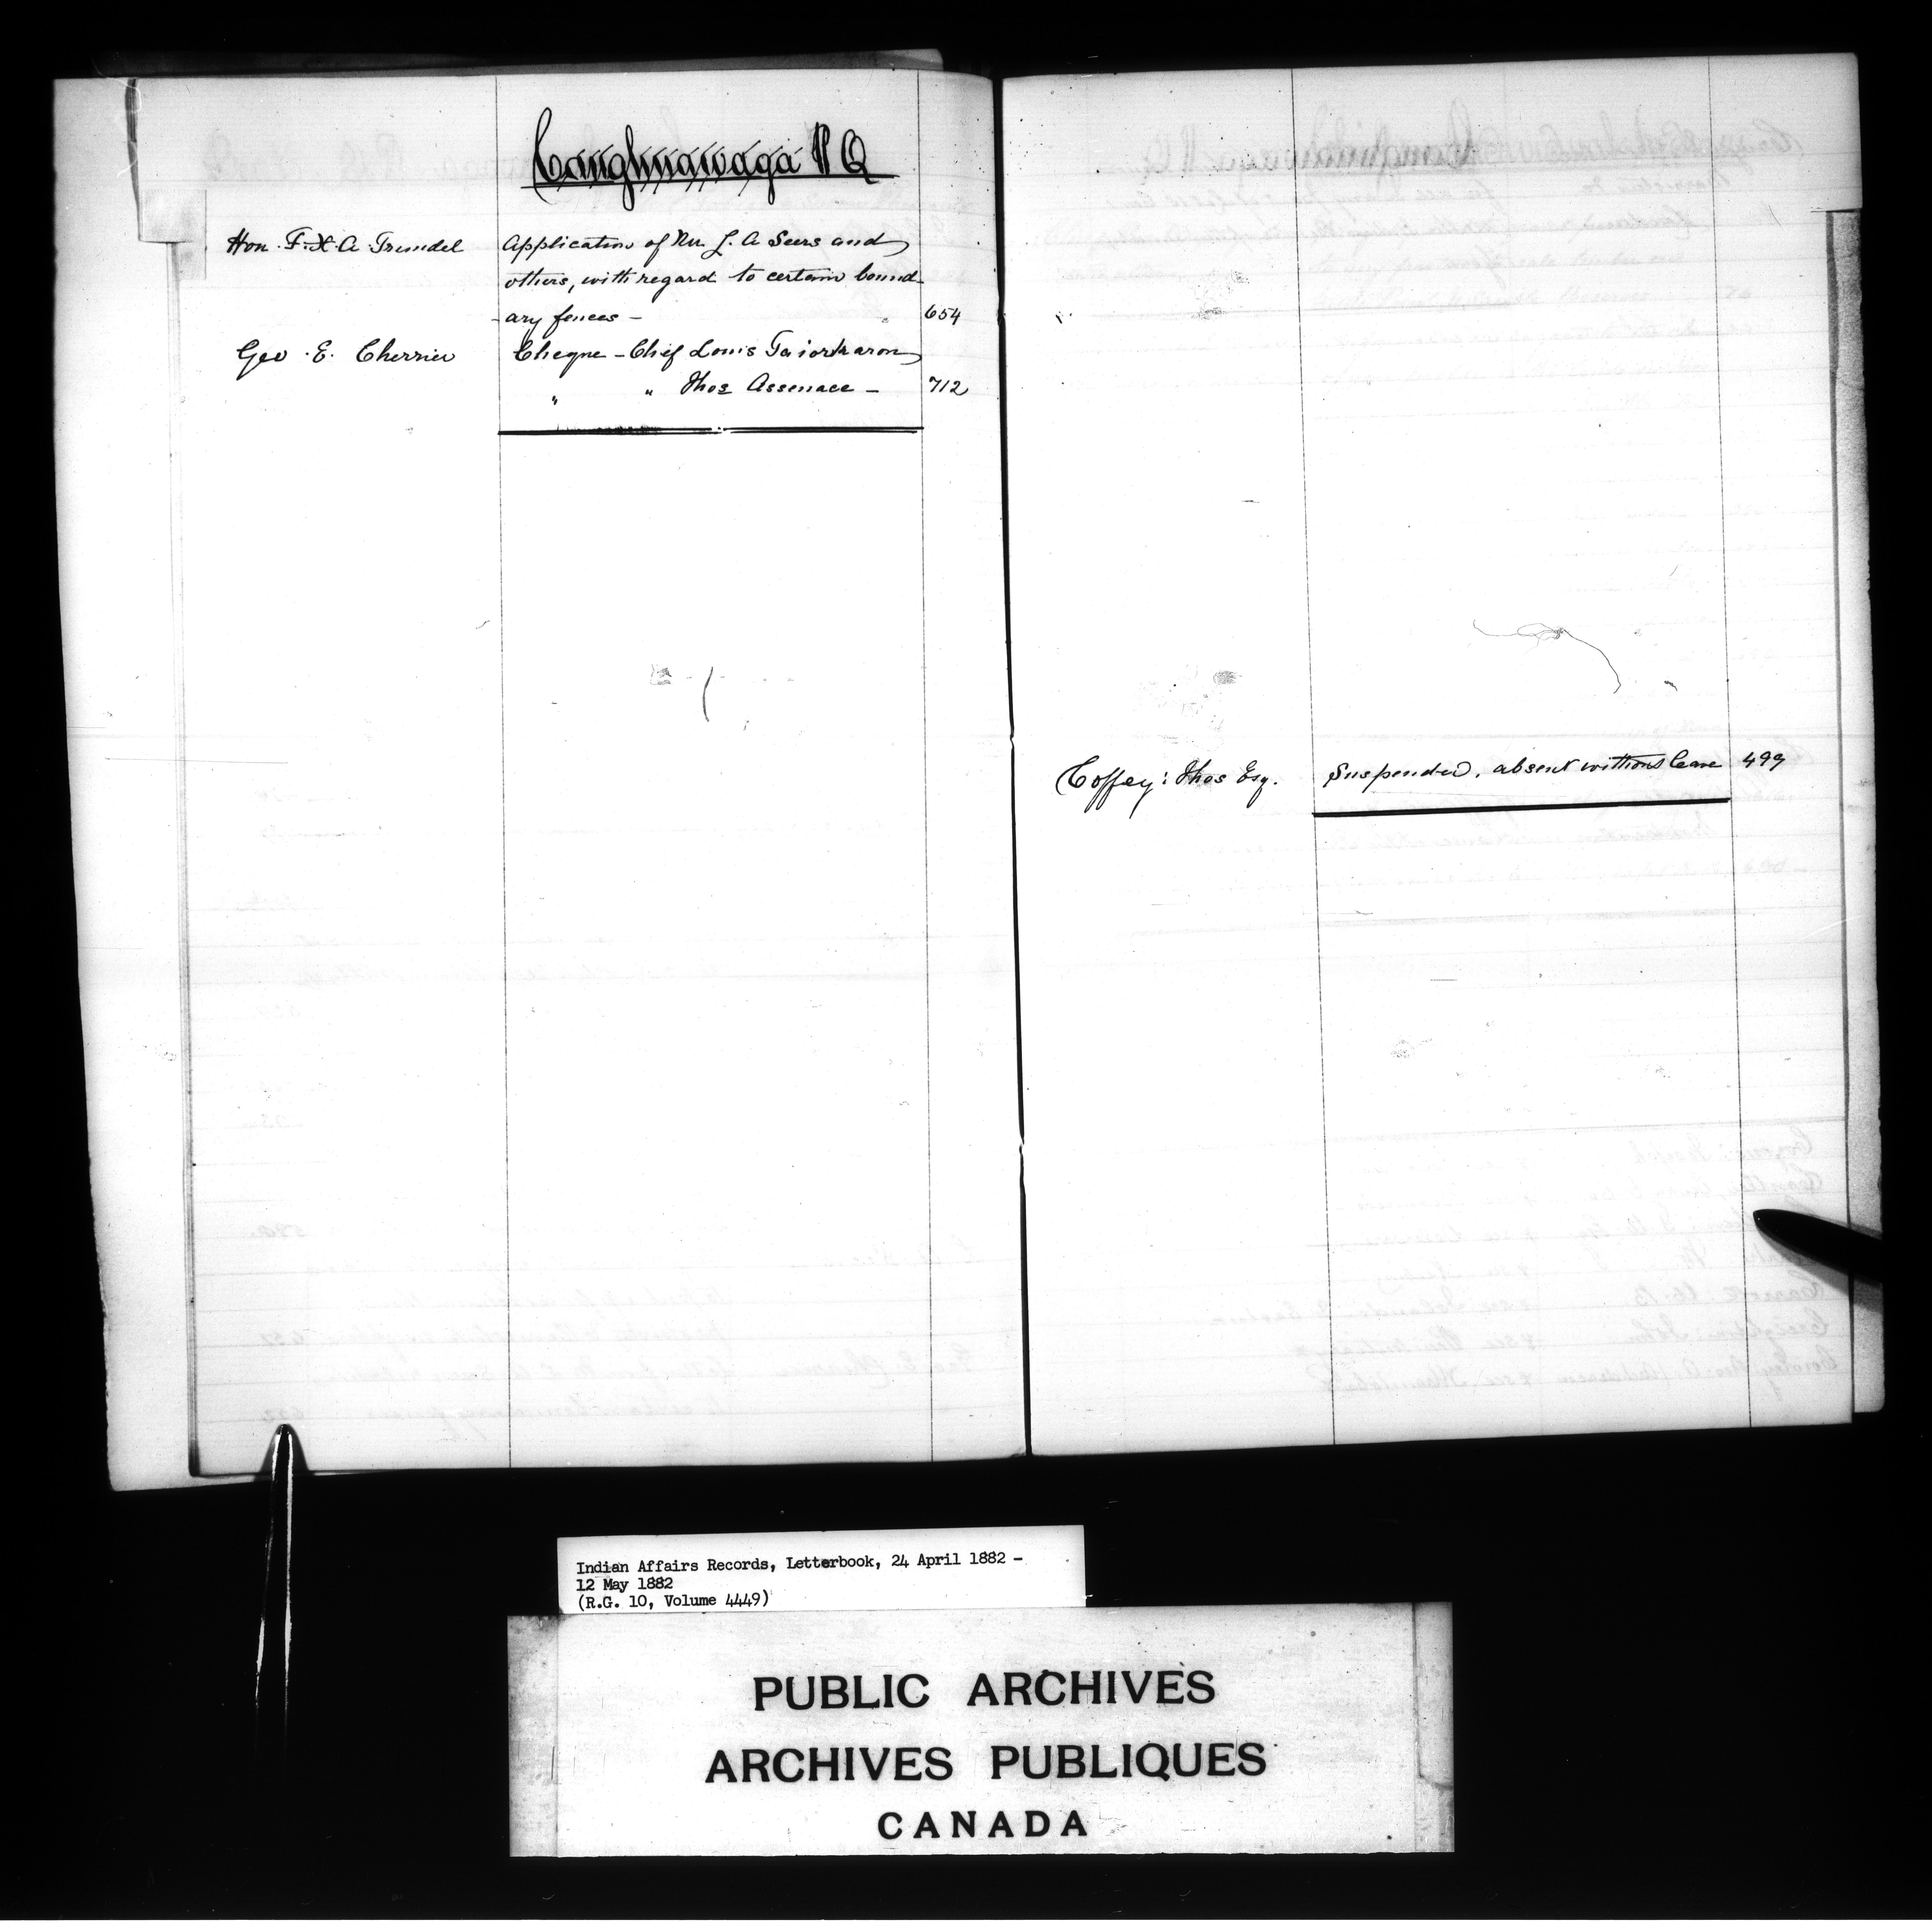 Caughnawaga P Q
Hon. F. X. A. Trundel Application of Mr. L. A Seers and
others, with regard to certain bound-
-ary fences - " 654
Geo. E. Cherrier Cheque - Chief Louis Taiorharon
" " Thos Assenace - 712
Coffey: Thos Esq. Suspended, absent without leave 499
Indian Affairs Records, Letterbook, 24 April 1882 -
12 May 1882
(R.G. 10, Volume 4449)
PUBLIC ARCHIVES
ARCHIVES PUBLIQUES
CANADA